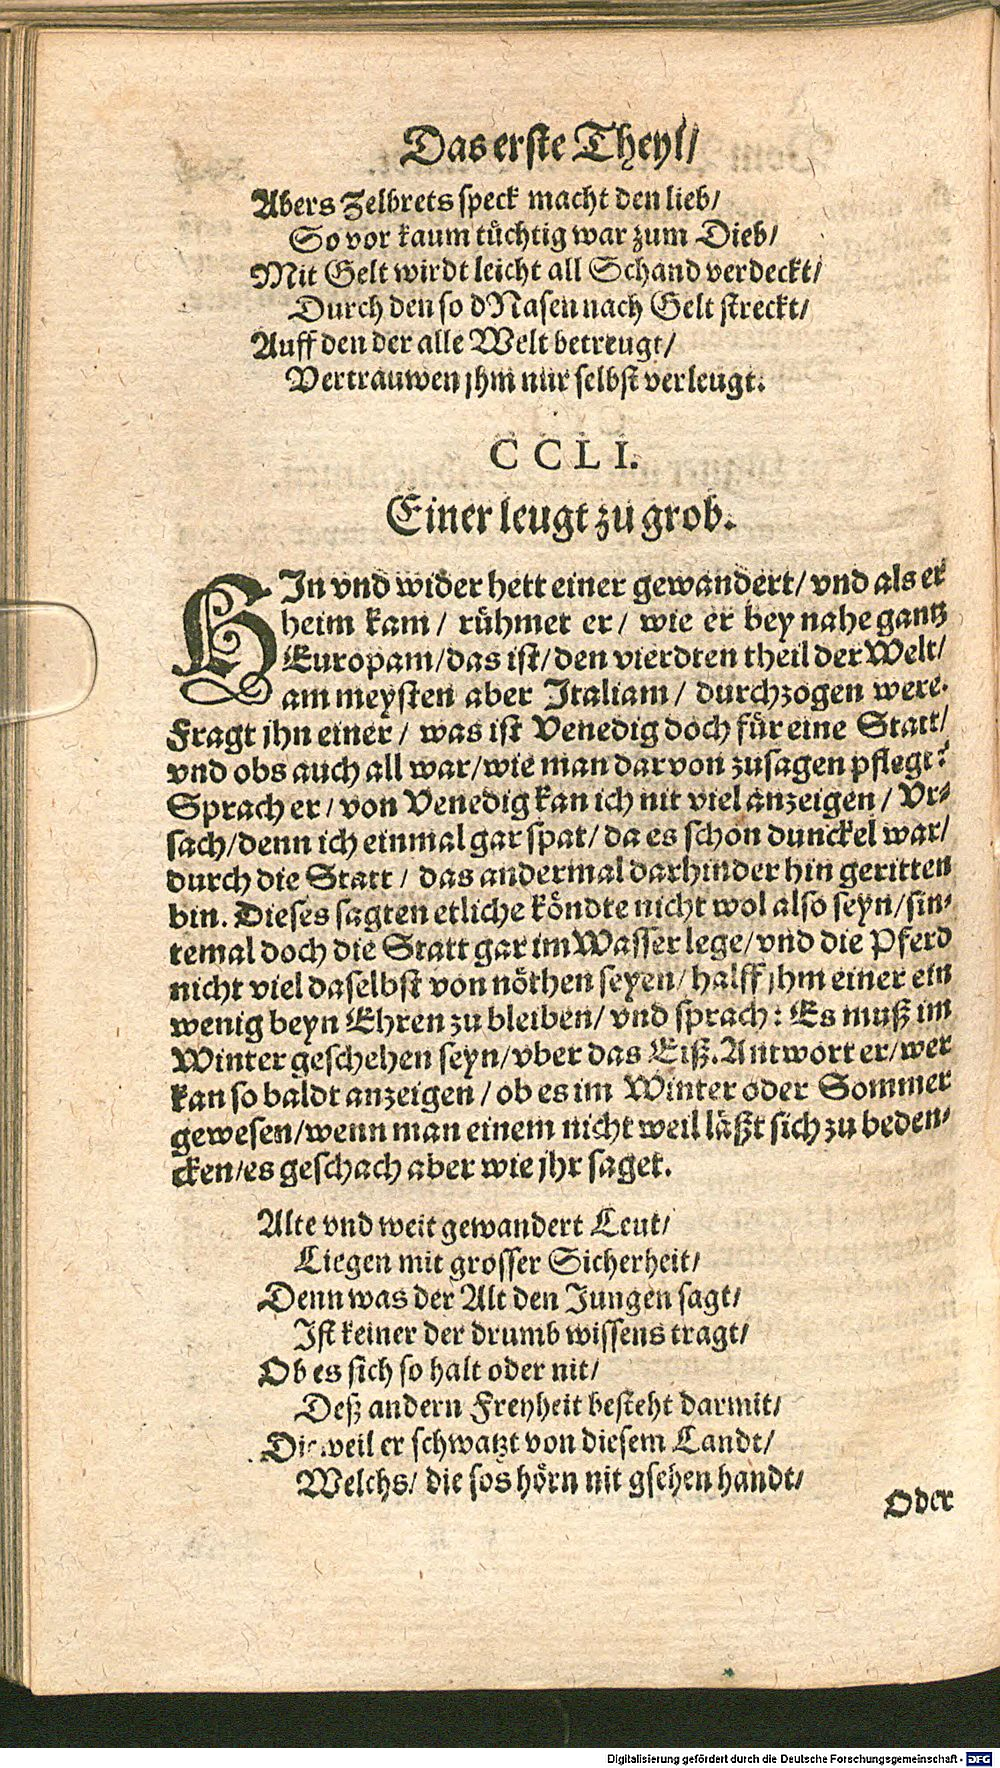 Das erste Theyl/
Abers Zelbrets speck macht den lieb/
So vor kaum tüchtig war zum Dieb/
Mit Gelt wirdt leicht all Schand verdeckt/
Durch den so dNasen nach Gelt streckt/
Auff den der alle Welt betreugt/
Vertrauwen jhm nur selbst verleugt.
CCLI.
Einer leugt zu grob.
HIn vnd wider hett einer gewandert/ vnd als er
heim kam/ rühmet er/ wie er bey nahe gantz
Europam/das ist/den vierdten theil der Welt/
am meysten aber Italiam/ durchzogen were.
Fragt jhn einer/ was ist Venedig doch für eine Statt/
vnd obs auch all war/wie man darvon zusagen pflegt?
Sprach er/von Venedig kan ich nit viel anzeigen/ Vr-
sach/denn ich einmal gar spat/da es schon dunckel war/
durch die Statt/ das andermal darhinder hin geritten
bin. Dieses sagten etliche köndte nicht wol also seyn/sin-
temal doch die Statt gar im Wasser lege/vnd die Pferd
nicht viel daselbst von nöthen seyen/halff jhm einer ein
wenig beyn Ehren zu bleiben/ vnd sprach: Es muß im
Winter geschehen seyn/vber das Eiß. Antwort er/wer
kan so baldt anzeigen/ob es im Winter oder Sommer
gewesen/wenn man einem nicht weil läßt sich zu beden-
cken/es geschach aber wie jhr saget.
Alte vnd weit gewandert Leut/
Liegen mit grosser Sicherheit/
Denn was der Alt den Jungen sagt/
Ist keiner der drumb wissens tragt/
Ob es sich so halt oder nit/
Deß andern Freyheit besteht darmit/
Dieweil er schwatzt von diesem Landt/
Welchs/ die sos hörn nit gsehen handt/
Oder
Digitalisierung gefördert durch die Deutsche Forschungsgemeinschaft - DFG